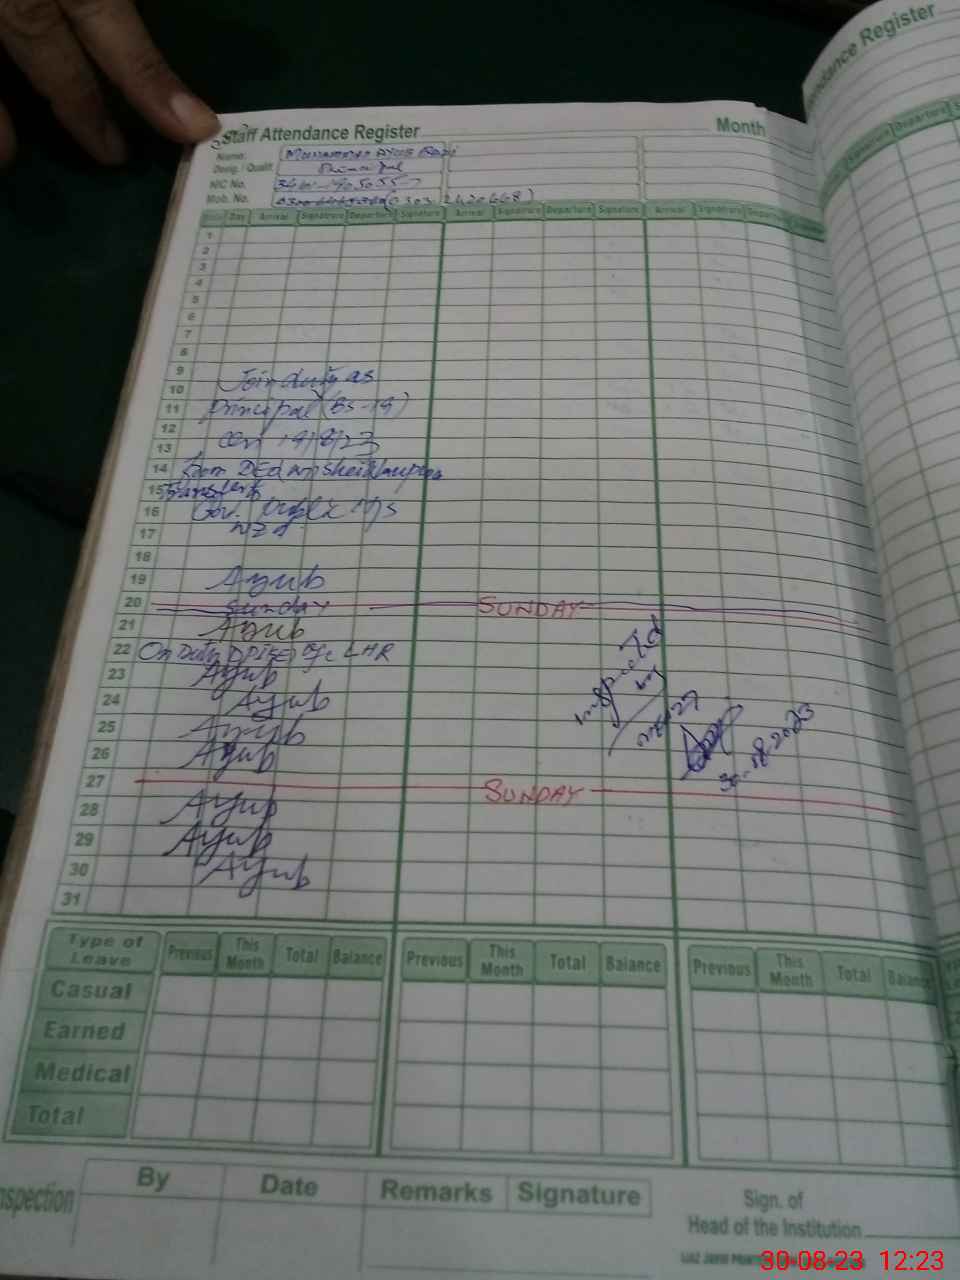 Staff Attendance Register
Month
Name:
Desig. / Qualif.
Principal
NIC No.
Mob. No.
Date Day Arrival Signature Departure Signature Arrival Signature Departure Signature Arrival Signature Departure
1
2
3
4
5
6
7
8
9
10 Join duty as
11 Principal (BS-19)
12
13 on 19/8/23
14 from DEO Sheikhupura
15
16 Gov.
17
18
19 Ayub
20 Sunday SUNDAY
21 Ayub
22 On Duty LHR
23 Ayub
24 Ayub
25 Ayub
26 Ayub
27 SUNDAY
28 Ayub
29 Ayub
30 Ayub
31
Inspected
by
30-08-2023
Type of Leave Previous This Month Total Balance Previous This Month Total Balance Previous This Month Total Balance
Casual
Earned
Medical
Total
Inspection By Date Remarks Signature
Sign. of
Head of the Institution
30-08-23 12:23
Attendance Register
Signature Departure